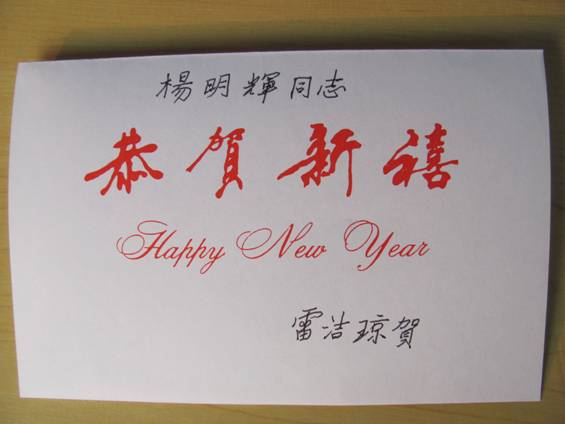 楊明輝同志
恭賀新禧
Happy New Year
雷洁琼賀